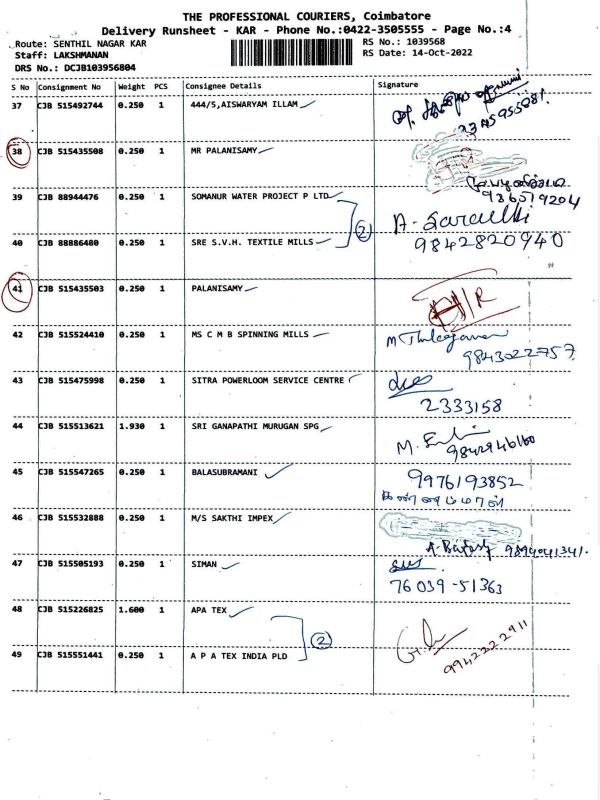 THE PROFESSIONAL COURIERS, Coimbatore
Delivery Runsheet - KAR - Phone No.:0422-3505555 - Page No.:4
Route: SENTHIL NAGAR KAR RS No.: 1039568
Staff: LAKSHMANAN RS Date: 14-Oct-2022
DRS No.: DCJB103956804
S No Consignment No Weight PCS Consignee Details Signature
37 CJB 515492744 0.250 1 444/5,AISWARYAM ILLAM
38 CJB 515435508 0.250 1 MR PALANISAMY
39 CJB 88944476 0.250 1 SOMANUR WATER PROJECT P LTD
986519204
2
40 CJB 88886480 0.250 1 SRE S.V.H. TEXTILE MILLS 9842820940
41 CJB 515435503 0.250 1 PALANISAMY
42 CJB 515524410 0.250 1 MS C M B SPINNING MILLS
9843022757
43 CJB 515475998 0.250 1 SITRA POWERLOOM SERVICE CENTRE
2333158
44 CJB 515513621 1.930 1 SRI GANAPATHI MURUGAN SPG
9842946160
45 CJB 515547265 0.250 1 BALASUBRAMANI 9976193852
46 CJB 515532888 0.250 1 M/S SAKTHI IMPEX
9894041341.
47 CJB 515505193 0.250 1 SIMAN
76039-51363
48 CJB 515226825 1.600 1 APA TEX
2
9942222911
49 CJB 515551441 0.250 1 A P A TEX INDIA PLD